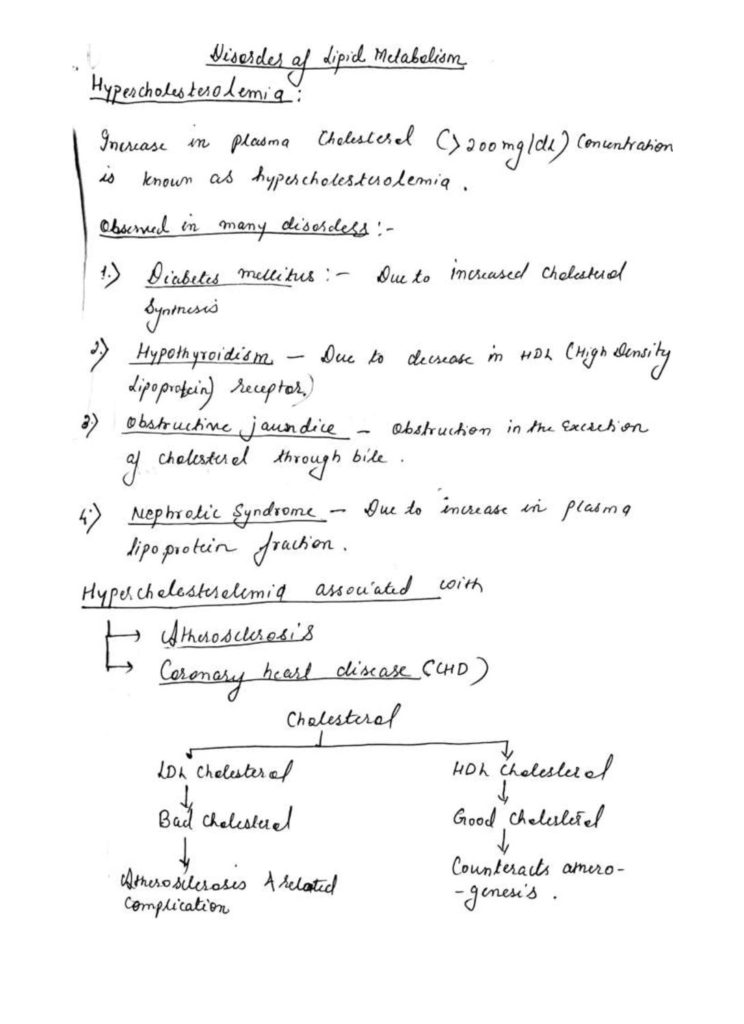 Disorder of Lipid Metabolism
Hypercholesterolemia :
Increase in plasma cholesterol (>200mg/dL) concentration
is known as hypercholesterolemia .
Observed in many disorders :-
1.) Diabetes mellitus :- Due to increased cholesterol
Synthesis
2.) Hypothyroidism - Due to decrease in HDL (High Density
Lipoprotein) receptor.)
3.) Obstructive jaundice - Obstruction in the Excretion
of cholesterol through bile .
4.) Nephrotic Syndrome - Due to increase in plasma
lipoprotein fraction .
Hypercholesterolemia associated with
→ Atherosclerosis
→ Coronary heart disease (CHD)
Cholesterol
LDL Cholesterol HDL Cholesterol
↓ ↓
Bad Cholesterol Good Cholesterol
↓ ↓
Atherosclerosis & related Counteracts athero-
complication -genesis .